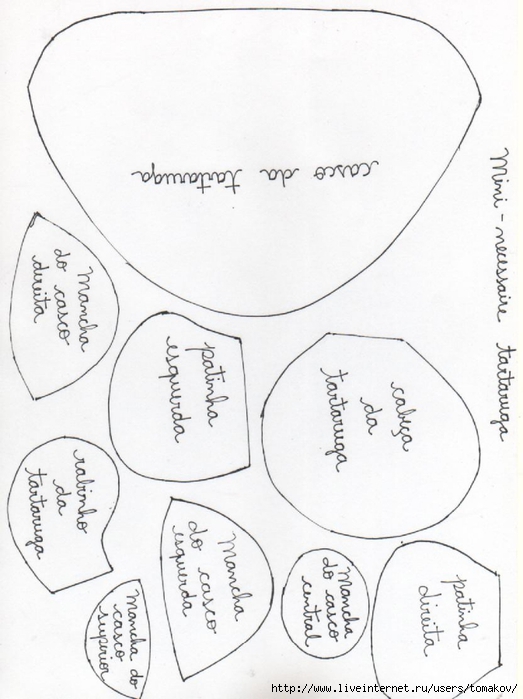 Mini - necessaire tartaruga
casco da tartaruga
mancha
do casco
direita
patinha
esquerda
cabeça
da
tartaruga
rabinho
da
tartaruga
mancha
do casco
esquerda
mancha
do casco
central
patinha
direita
mancha do
casco
superior
http://www.liveinternet.ru/users/tomakov/